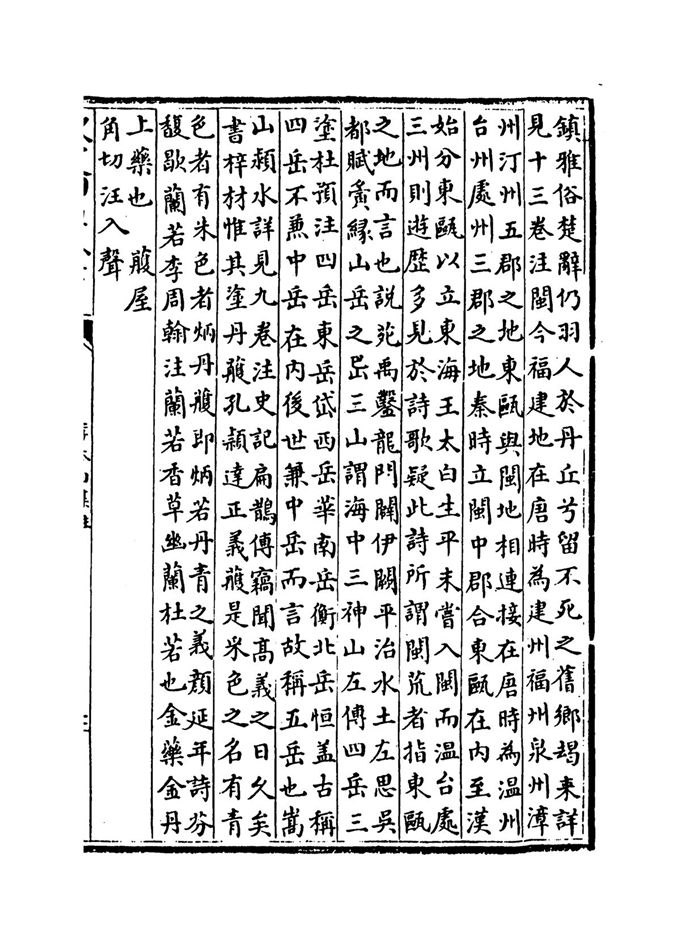 鎮雅俗楚辭仍羽人於丹丘兮留不死之舊鄉朅来詳
見十三卷注閩今福建地在唐時為建州福州泉州漳
州汀州五郡之地東甌與閩地相連接在唐時為温州
台州處州三郡之地秦時立閩中郡合東甌在内至漢
始分東甌以立東海王太白生平未嘗入閩而温台處
三州則遊歴多見於詩歌疑此詩所謂閩荒者指東甌
之地而言也說苑禹鑿龍門闢伊闕平治水土左思吳
都賦夤緣山岳之岊三山謂海中三神山左傳四岳三
塗杜預注四岳東岳岱西岳華南岳衡北岳恒盖古稱
四岳不兼中岳在内後世兼中岳而言故稱五岳也嵩
山潁水詳見九卷注史記扁鵲傳竊聞髙義之日久矣
書梓材惟其塗丹雘孔潁達正義雘是彩色之名有青
色者有朱色者炳丹雘即炳若丹青之義顔延年詩芬
馥歇蘭若李周翰注蘭若香草幽蘭杜若也金藥金丹
上藥也 雘屋
角切汪入聲
李太白集注